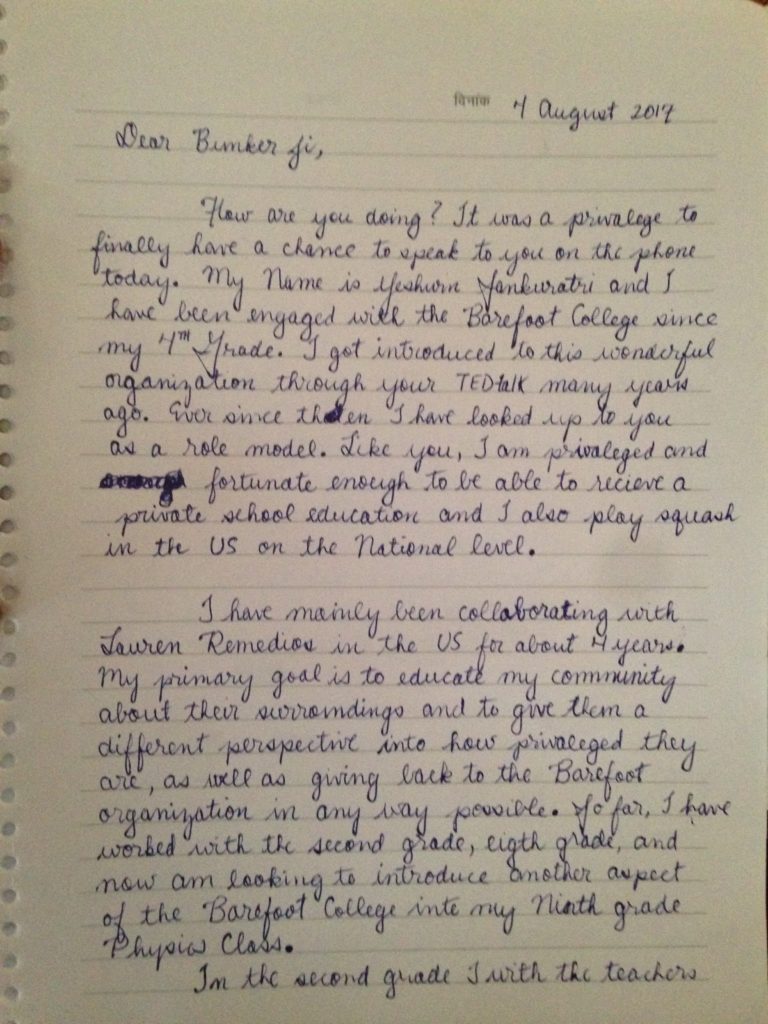 दिनांक 4 August 2017
Dear Bunker Ji,
How are you doing? It was a privalege to
finally have a chance to speak to you on the phone
today. My Name is Yeshwin Yankuratri and I
have been engaged with the Barefoot College since
my 4th Grade. I got introduced to this wonderful
organization through your TEDtalk many years
ago. Ever since then I have looked up to you
as a role model. Like you, I am privaleged and
fortunate enough to be able to recieve a
private school education and I also play squash
in the US on the National level.
I have mainly been collaborating with
Lauren Remedios in the US for about 4 years.
My primary goal is to educate my community
about their surroundings and to give them a
different perspective into how privaleged they
are, as well as giving back to the Barefoot
organization in any way possible. So far, I have
worked with the second grade, eigth grade, and
now am looking to introduce another aspect
of the Barefoot College into my Ninth grade
Physics Class.
In the second grade I with the teachers